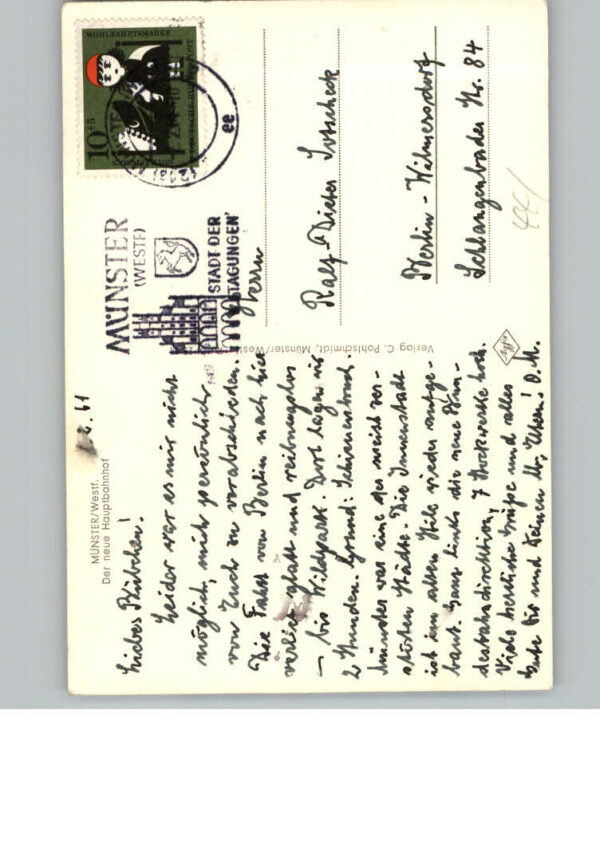 MÜNSTER/Westf.
Der neue Hauptbahnhof
8. 61
Liebes Bübchen!
Leider war es mir nicht
möglich, mich persönlich
von Euch zu verabschieden.
Die Fahrt von Berlin nach hier
verlief glatt und reibungslos
– bis Wildpark. Dort lagen wir
2 Stunden. Grund: Schienenbruch.
Münster war eine der meist zer-
störten Städte. Die Innenstadt
ist im alten Stile wieder aufge-
baut. Ganz links die neue Bun-
desbahndirektion, 7 Stockwerke hoch.
Viele herzliche Grüße und alles
Gute Dir und Deinen lb. Eltern! O.M.
MÜNSTER
(WESTF)
STADT DER
TAGUNGEN
WOHLFAHRTSMARKE
10+5
DEUTSCHE BUNDESPOST
ee
Verlag C. Pohlschmidt, Münster/Westf.
Agfa
Herrn
Ralf-Dieter
Berlin-Wilmersdorf
Schlangenbader Str. 84